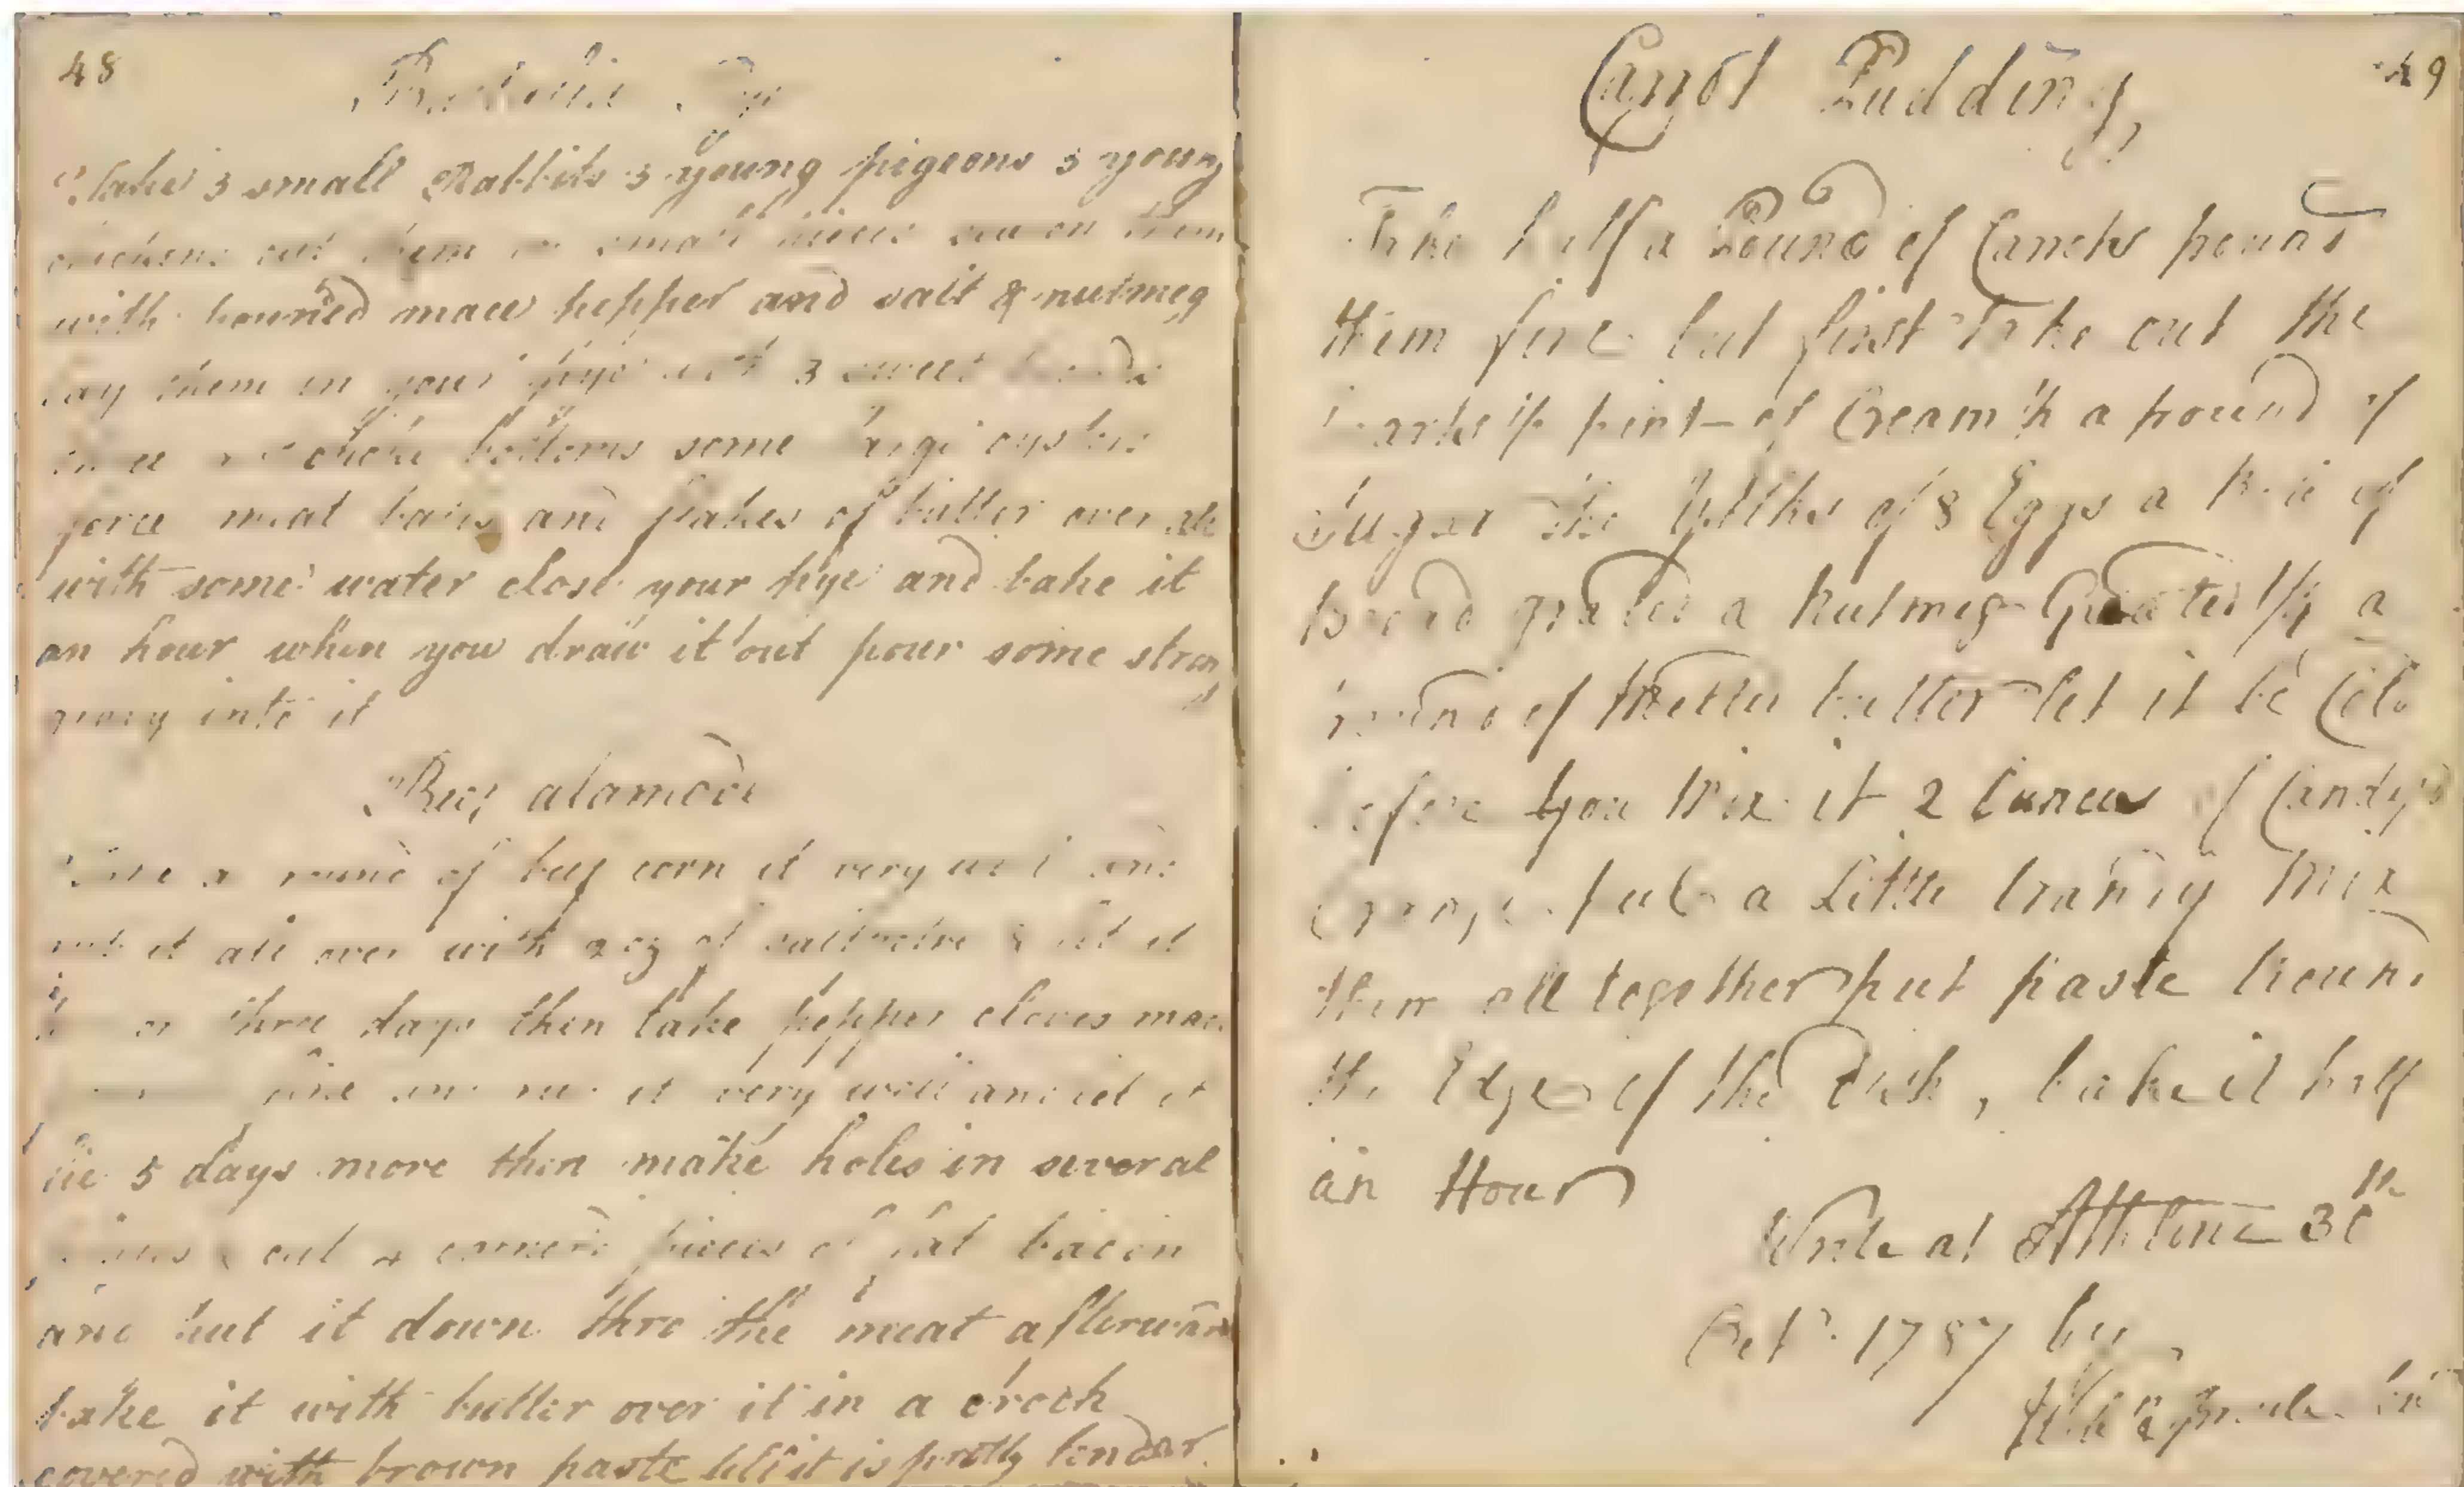 48
Take 3 small Rabbits 3 young pigeons 3 young
chickens cut them in small pieces season them
with pounded mace pepper and salt & nutmeg
lay them in your pye with 3 sweet breads
bottoms some large oysters
force meat balls and flakes of butter over all
with some water close your pye and bake it
an hour when you draw it out pour some strong
gravy into it
Beef alamode
Take a round of beef corn it very well and
rub it all over with 2 oz of saltpetre & let it
or three days then take pepper cloves mace
fine and rub it very well and let it
lie 5 days more then make holes in several
cut 4 corner'd pieces of fat bacon
and put it down thro the meat afterward
bake it with butter over it in a crock
covered with brown paste till it is pretty tender
49
Carrot Pudding,
Take half a Pound of Carrots pound
them fine but first Take out the
pint of Cream ½ a pound of
Sugar the Yolks of 8 Eggs a of
Bread grated a Nutmeg Grated ½ a
pound of Melted butter let it be Cold
before You Mix it 2 Ounces of Candy'd
Orange put a Little brandy Mix
them all together put paste Round
the Edge of the Dish, bake it half
an Hour
Wrote at Athlone 30th
Octr. 1787 by